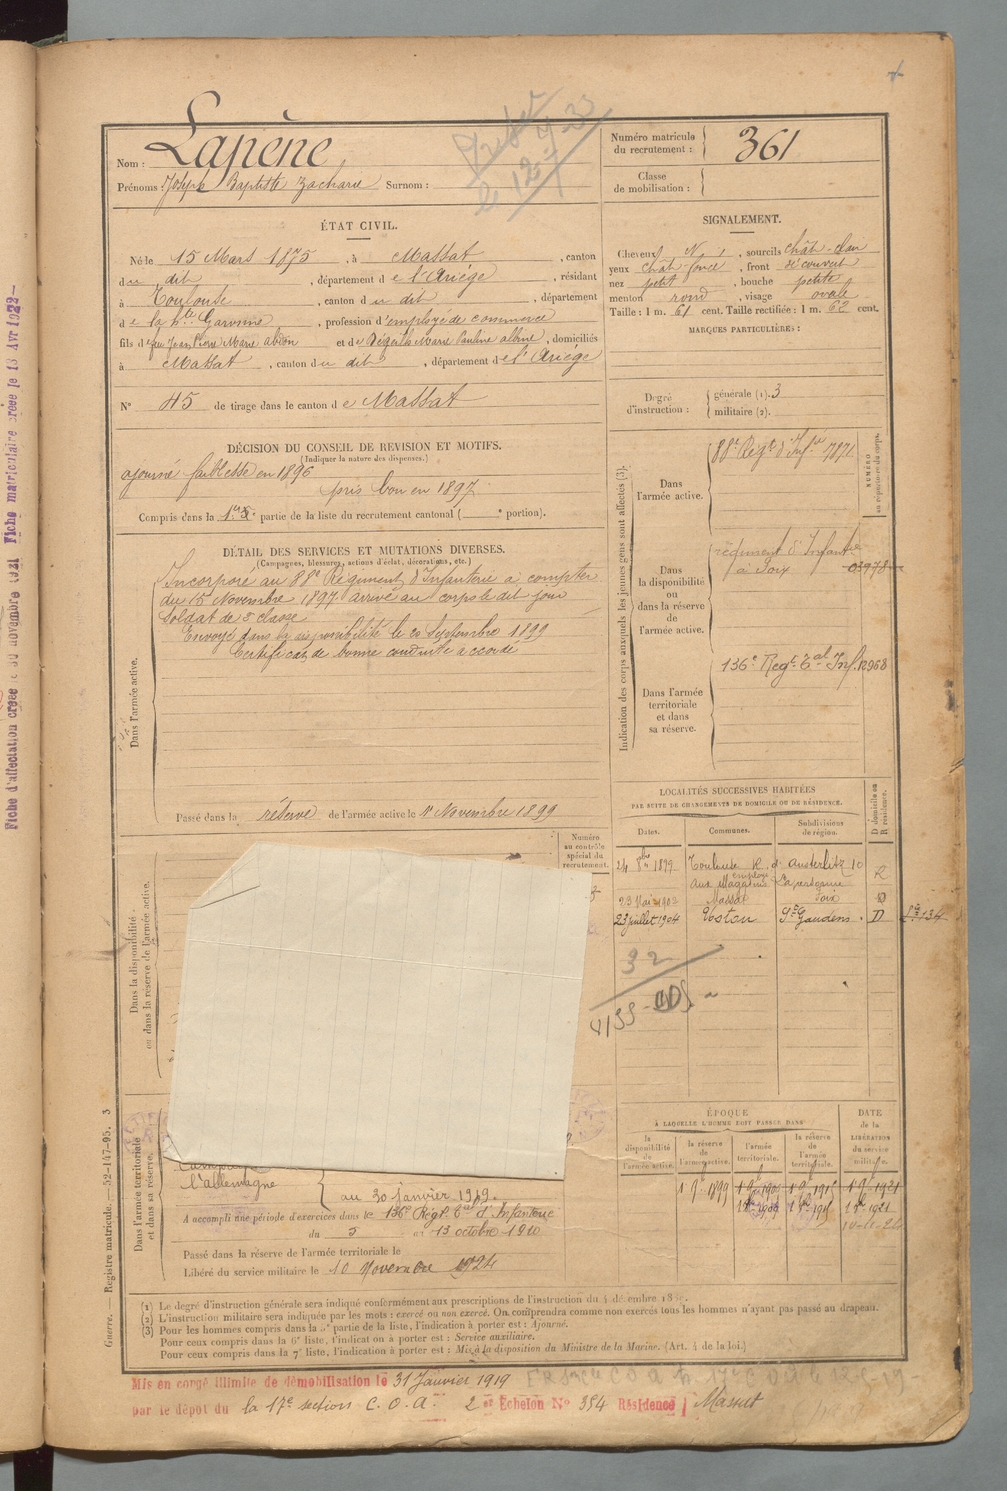 Fiche d'affectation créée le 30 novembre 1921 Fiche matriculaire créée le 18 Avr 1922
Nom : Lapène
Prénoms : Joseph Baptiste Zacharie Surnom :
le 12-7-33
Numéro matricule du recrutement : 361
Classe de mobilisation :
ÉTAT CIVIL.
Né le 15 Mars 1875, à Massat, canton
du dit, département de l'Ariège, résidant
à Toulouse, canton du dit, département
de la Hte Garonne, profession d'employé de commerce
fils de feu Jean Pierre Marie abdon et de Dégeilh Marie Pauline albine, domiciliés
à Massat, canton du dit, département de l'Ariège
N° 45 de tirage dans le canton de Massat
SIGNALEMENT.
Cheveux N, sourcils chât-clair
yeux chât-foncé, front découvert
nez petit, bouche petite
menton rond, visage ovale
Taille : 1 m. 61 cent. Taille rectifiée : 1 m. 62 cent.
MARQUES PARTICULIÈRES :
Degré d'instruction : générale (1). 3
militaire (2).
DÉCISION DU CONSEIL DE REVISION ET MOTIFS.
(Indiquer la nature des dispenses.)
ajourné faiblesse en 1896
pris bon en 1897
Compris dans la 1re partie de la liste du recrutement cantonal ( ° portion).
DÉTAIL DES SERVICES ET MUTATIONS DIVERSES.
(Campagnes, blessures, actions d'éclat, décorations, etc.)
Dans l'armée active.
Incorporé au 88e Régiment d'Infanterie à compter
du 15 Novembre 1897 arrivé au corps le dit jour
Soldat de 2e classe
Envoyé dans la disponibilité le 20 Septembre 1899
Certificat de bonne conduite accordé
Passé dans la réserve de l'armée active le 1er Novembre 1899
Indication des corps auxquels les jeunes gens sont affectés (3).
NUMÉRO au répertoire du corps.
Dans l'armée active.
88e Régt d'Infie 7871
Dans la disponibilité ou dans la réserve de l'armée active.
régiment d'Infanterie
à Foix 03978
Dans l'armée territoriale et dans sa réserve.
136e Regt Tal Inf. 12968
LOCALITÉS SUCCESSIVES HABITÉES
PAR SUITE DE CHANGEMENTS DE DOMICILE OU DE RÉSIDENCE.
Dates. Communes. Subdivisions de région. D domicile ou R résidence.
24 8bre 1899 Toulouse R. d'Austerlitz 10 R
employé aux Magasins Lapersonne
23 Mai 1902 Massat Foix D
23 juillet 1904 Boston St Gaudens. D
32
Numéro au contrôle spécial du recrutement.
Dans la disponibilité ou dans la réserve de l'armée active.
Dans l'armée territoriale et dans sa réserve.
l'allemagne
au 30 janvier 1919.
A accompli une période d'exercices dans le 136e Régt Tal d'Infanterie
du 5 au 13 octobre 1910
Passé dans la réserve de l'armée territoriale le
Libéré du service militaire le 10 Novembre 1924
ÉPOQUE
À LAQUELLE L'HOMME DOIT PASSER DANS
la disponibilité de l'armée active. la réserve de l'armée active. l'armée territoriale. la réserve de l'armée territoriale.
DATE de la LIBÉRATION du service militaire.
Guerre. — Registre matricule. — 52-147-95. 3
(1) Le degré d'instruction générale sera indiqué conformément aux prescriptions de l'instruction du 4 décembre 1889.
(2) L'instruction militaire sera indiquée par les mots : exercé ou non exercé. On comprendra comme non exercés tous les hommes n'ayant pas passé au drapeau.
(3) Pour les hommes compris dans la 5e partie de la liste, l'indication à porter est : Ajourné.
Pour ceux compris dans la 6e liste, l'indication à porter est : Service auxiliaire.
Pour ceux compris dans la 7e liste, l'indication à porter est : Mis à la disposition du Ministre de la Marine. (Art. 4 de la loi.)
Mis en congé illimité de démobilisation le 31 Janvier 1919
par le dépôt du la 17e section C.O.A. 2e Échelon N° 354 Résidence Massat